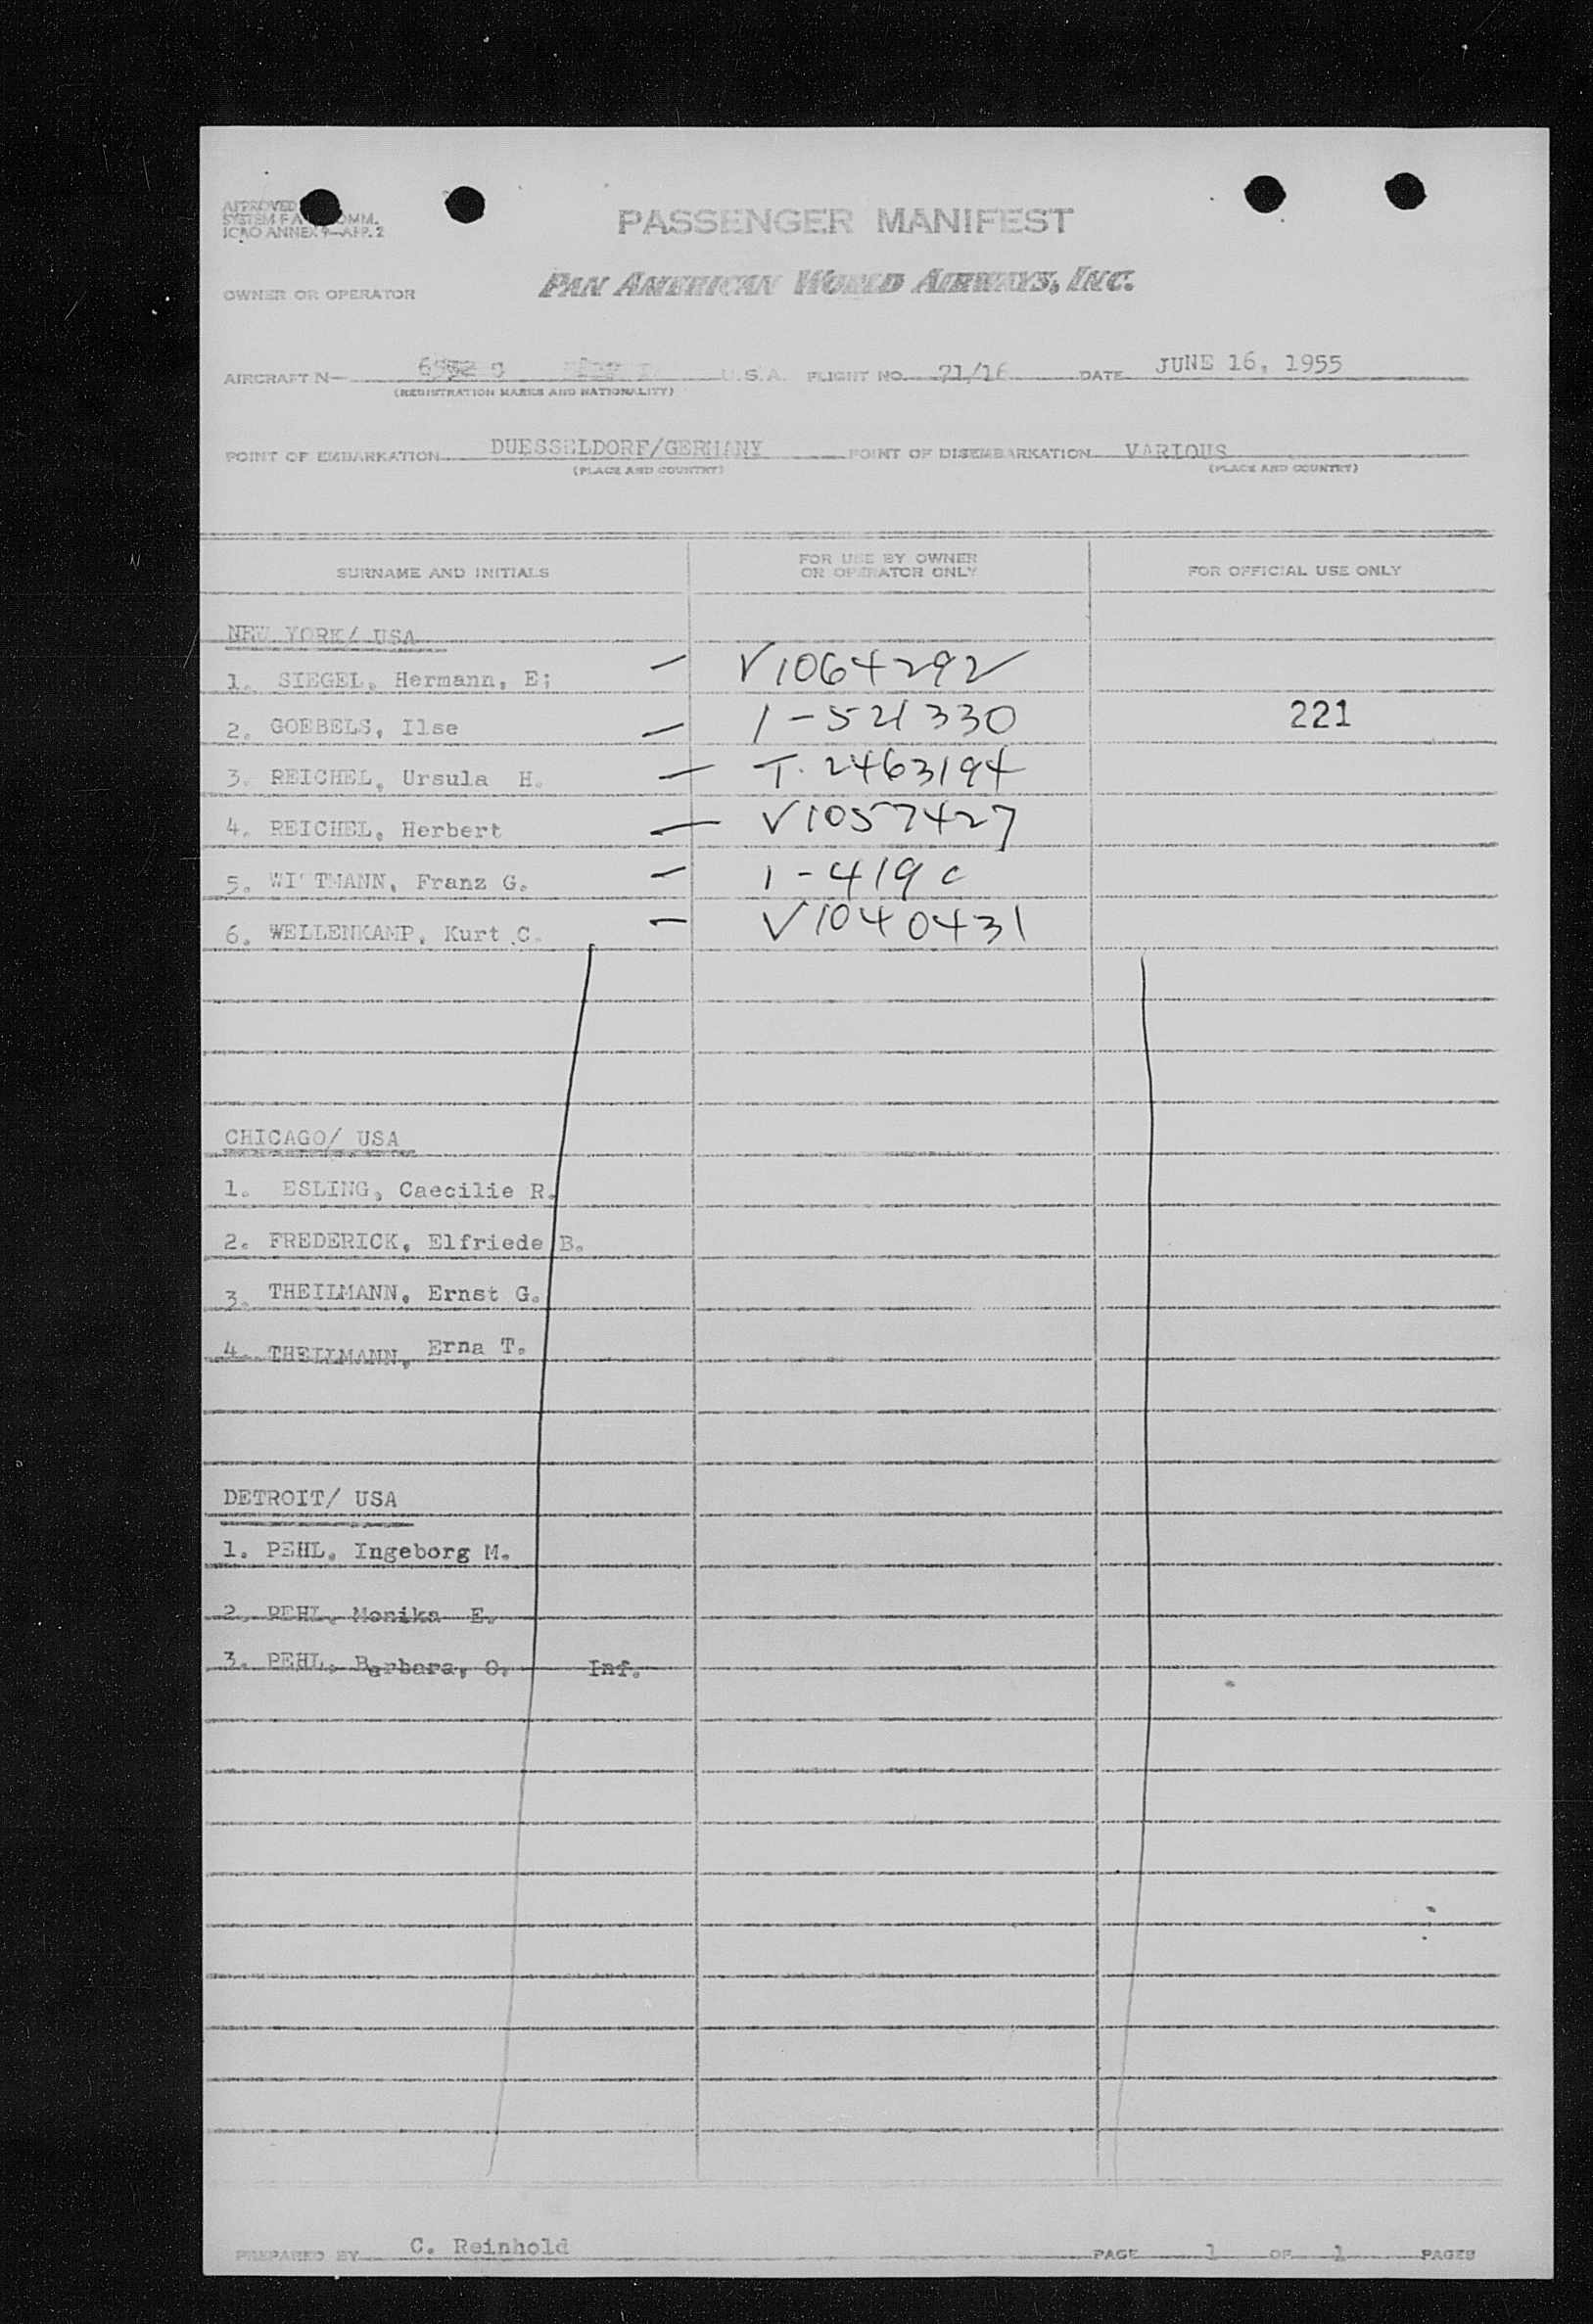 APPROVED
SYSTEM F A COMM.
ICAO ANNEX 9—APP. 2
PASSENGER MANIFEST
OWNER OR OPERATOR PAN AMERICAN WORLD AIRWAYS, INC.
AIRCRAFT N— U.S.A. FLIGHT NO. 71/16 DATE JUNE 16, 1955
(REGISTRATION MARKS AND NATIONALITY)
POINT OF EMBARKATION DUESSELDORF/GERMANY POINT OF DISEMBARKATION VARIOUS
(PLACE AND COUNTRY) (PLACE AND COUNTRY)
SURNAME AND INITIALS FOR USE BY OWNER OR OPERATOR ONLY FOR OFFICIAL USE ONLY
NEW YORK/ USA
1. SIEGEL, Hermann, E; — V1064292
2. GOEBELS, Ilse — 1-521330 221
3. REICHEL, Ursula H. — T. 2463194
4. REICHEL, Herbert — V1057427
5. WITTMANN, Franz G. — 1-419 c
6. WELLENKAMP, Kurt C. — V1040431
CHICAGO/ USA
1. ESLING, Caecilie R.
2. FREDERICK, Elfriede B.
3. THEILMANN, Ernst G.
4. THEILMANN, Erna T.
DETROIT/ USA
1. PEHL, Ingeborg M.
2. PEHL, Monika E.
3. PEHL, Barbara, O. Inf.
PREPARED BY C. Reinhold PAGE 1 OF 1 PAGES